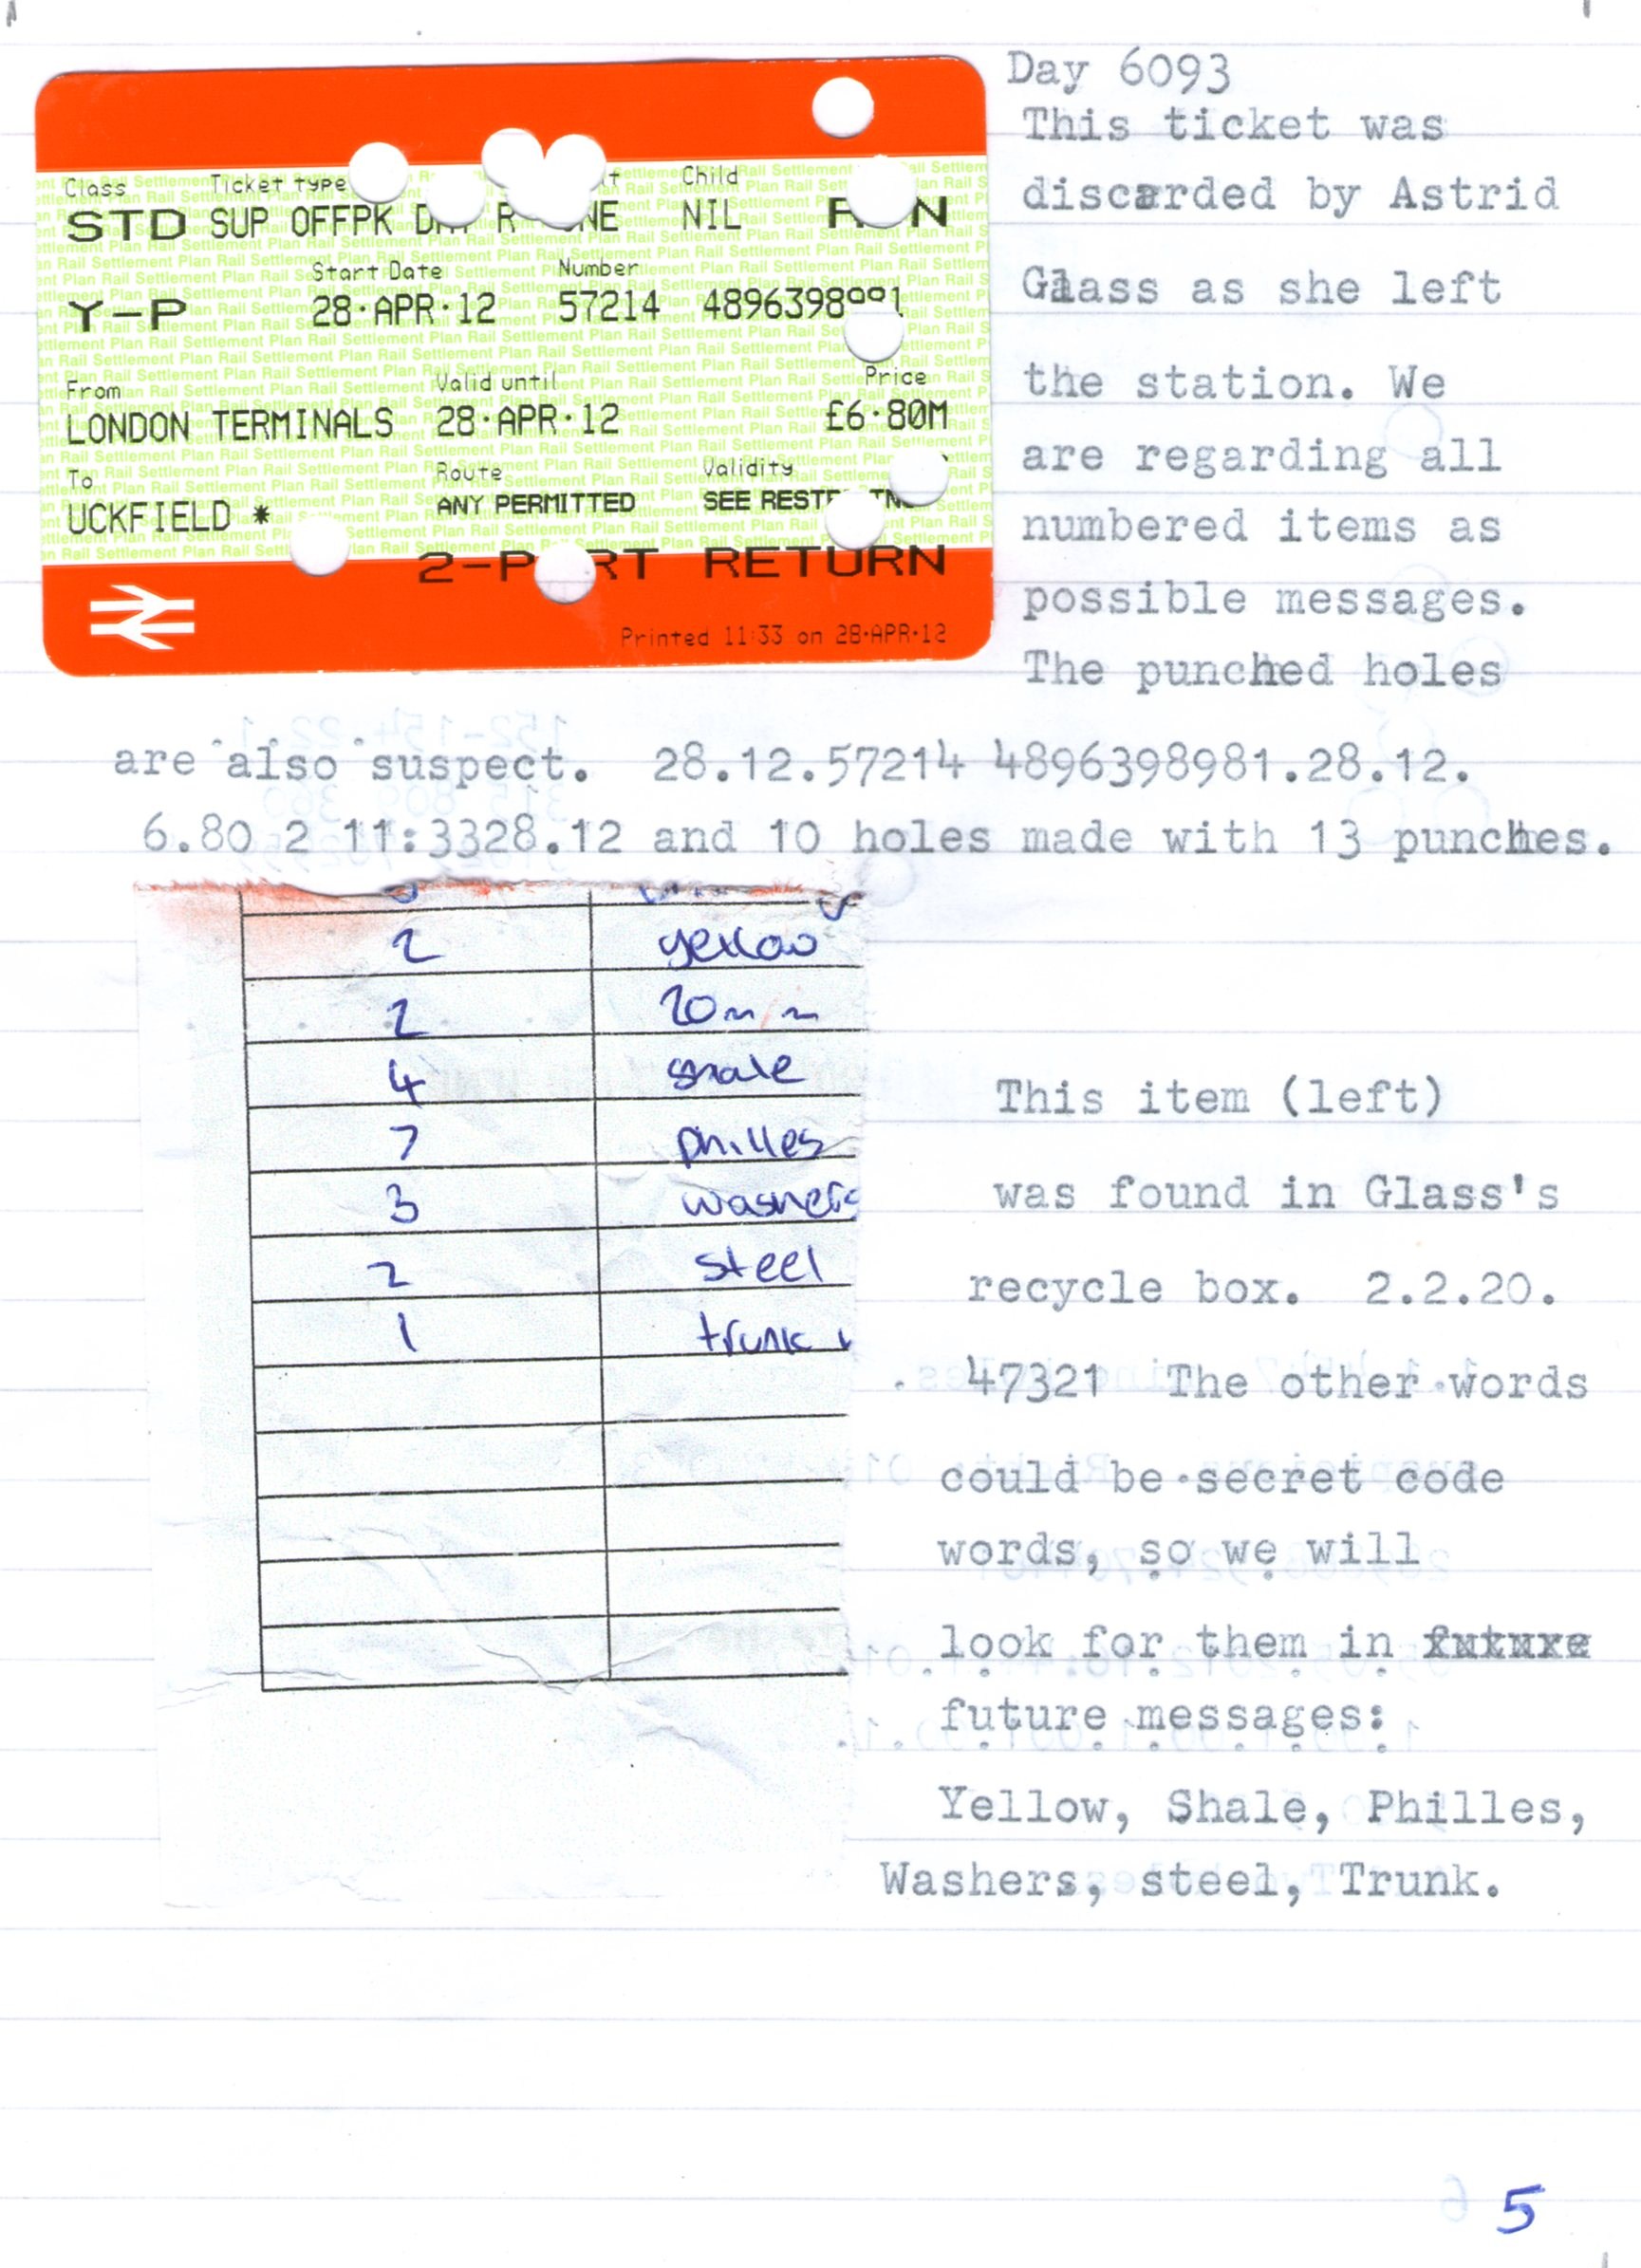 Day 6093
This ticket was
discarded by Astrid
Glass as she left
the station. We
are regarding all
numbered items as
possible messages.
The punched holes
are also suspect. 28.12.57214 4896398981.28.12.
6.80 2 11:3328.12 and 10 holes made with 13 punches.
Class Ticket type Child
STD SUP OFFPK NIL
Start Date Number
Y-P 28·APR·12 57214 4896398
From Valid until Price
LONDON TERMINALS 28·APR·12 £6·80M
To Route Validity
UCKFIELD * ANY PERMITTED SEE
2-PART RETURN
Printed 11:33 on 28·APR·12
2 yellow
2 20mm
4 shale
7 philles
3 washers
2 steel
1 trunk
This item (left)
was found in Glass's
recycle box. 2.2.20.
47321 The other words
could be secret code
words, so we will
look for them in future
future messages:
Yellow, Shale, Philles,
Washers, steel, Trunk.
5